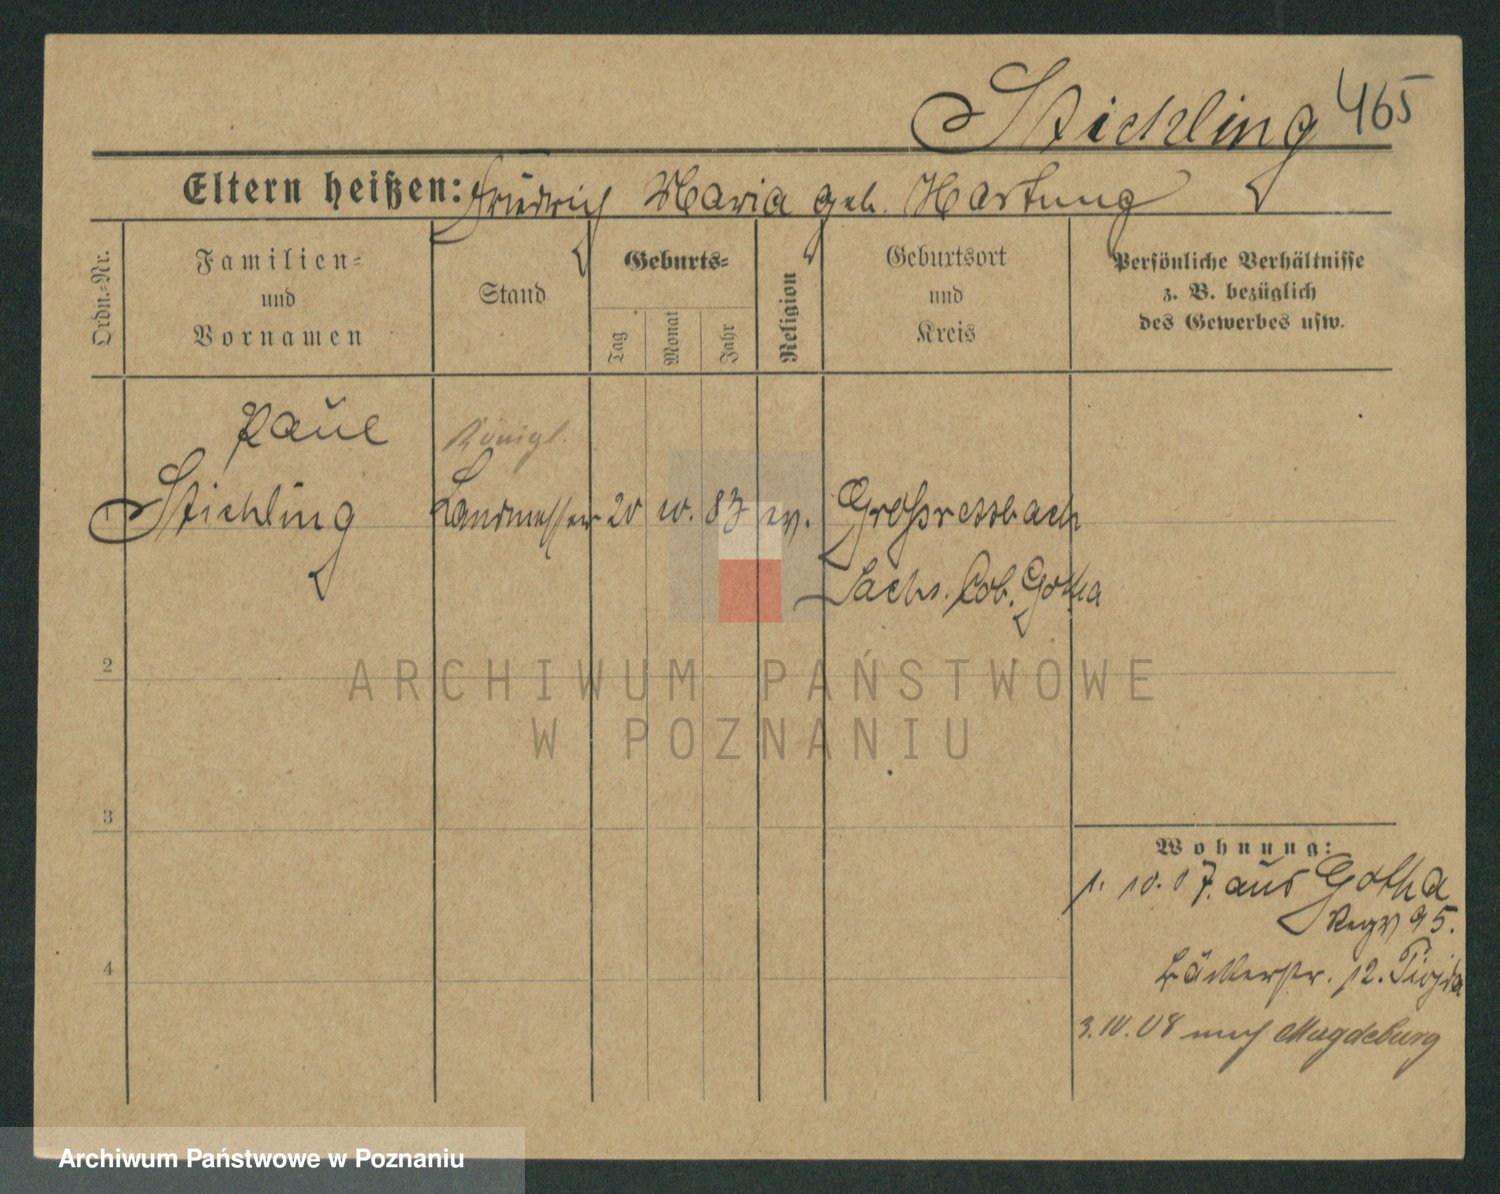 Stichling 465
Eltern heißen: Friedrich Maria geb. Hartung
Ordn.=Nr.
Familien=
und
Vornamen
Stand
Geburts=
Tag
Monat
Jahr
Religion
Geburtsort
und
Kreis
Persönliche Verhältnisse
z. B. bezüglich
des Gewerbes usw.
Paul
Königl.
1 Stichling Landmesser 20 10. 83 ev.
Sachs. Cob. Gotha
2
ARCHIWUM PAŃSTWOWE
W POZNANIU
3
4
Wohnung:
1. 10. 07. aus Gotha
95.
Bäckerstr. 12.
3. IV. 08 nach Magdeburg
Archiwum Państwowe w Poznaniu